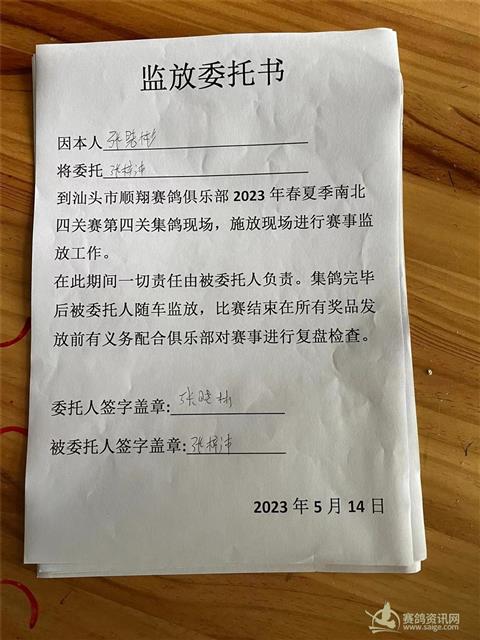 监放委托书
因本人 张晓彬
将委托 张梓沛
到汕头市顺翔赛鸽俱乐部 2023 年春夏季南北
四关赛第四关集鸽现场，施放现场进行赛事监
放工作。
在此期间一切责任由被委托人负责。集鸽完毕
后被委托人随车监放，比赛结束在所有奖品发
放前有义务配合俱乐部对赛事进行复盘检查。
委托人签字盖章:张晓彬
被委托人签字盖章:张梓沛
2023 年 5 月 14 日
赛鸽资讯网
www.saige.com